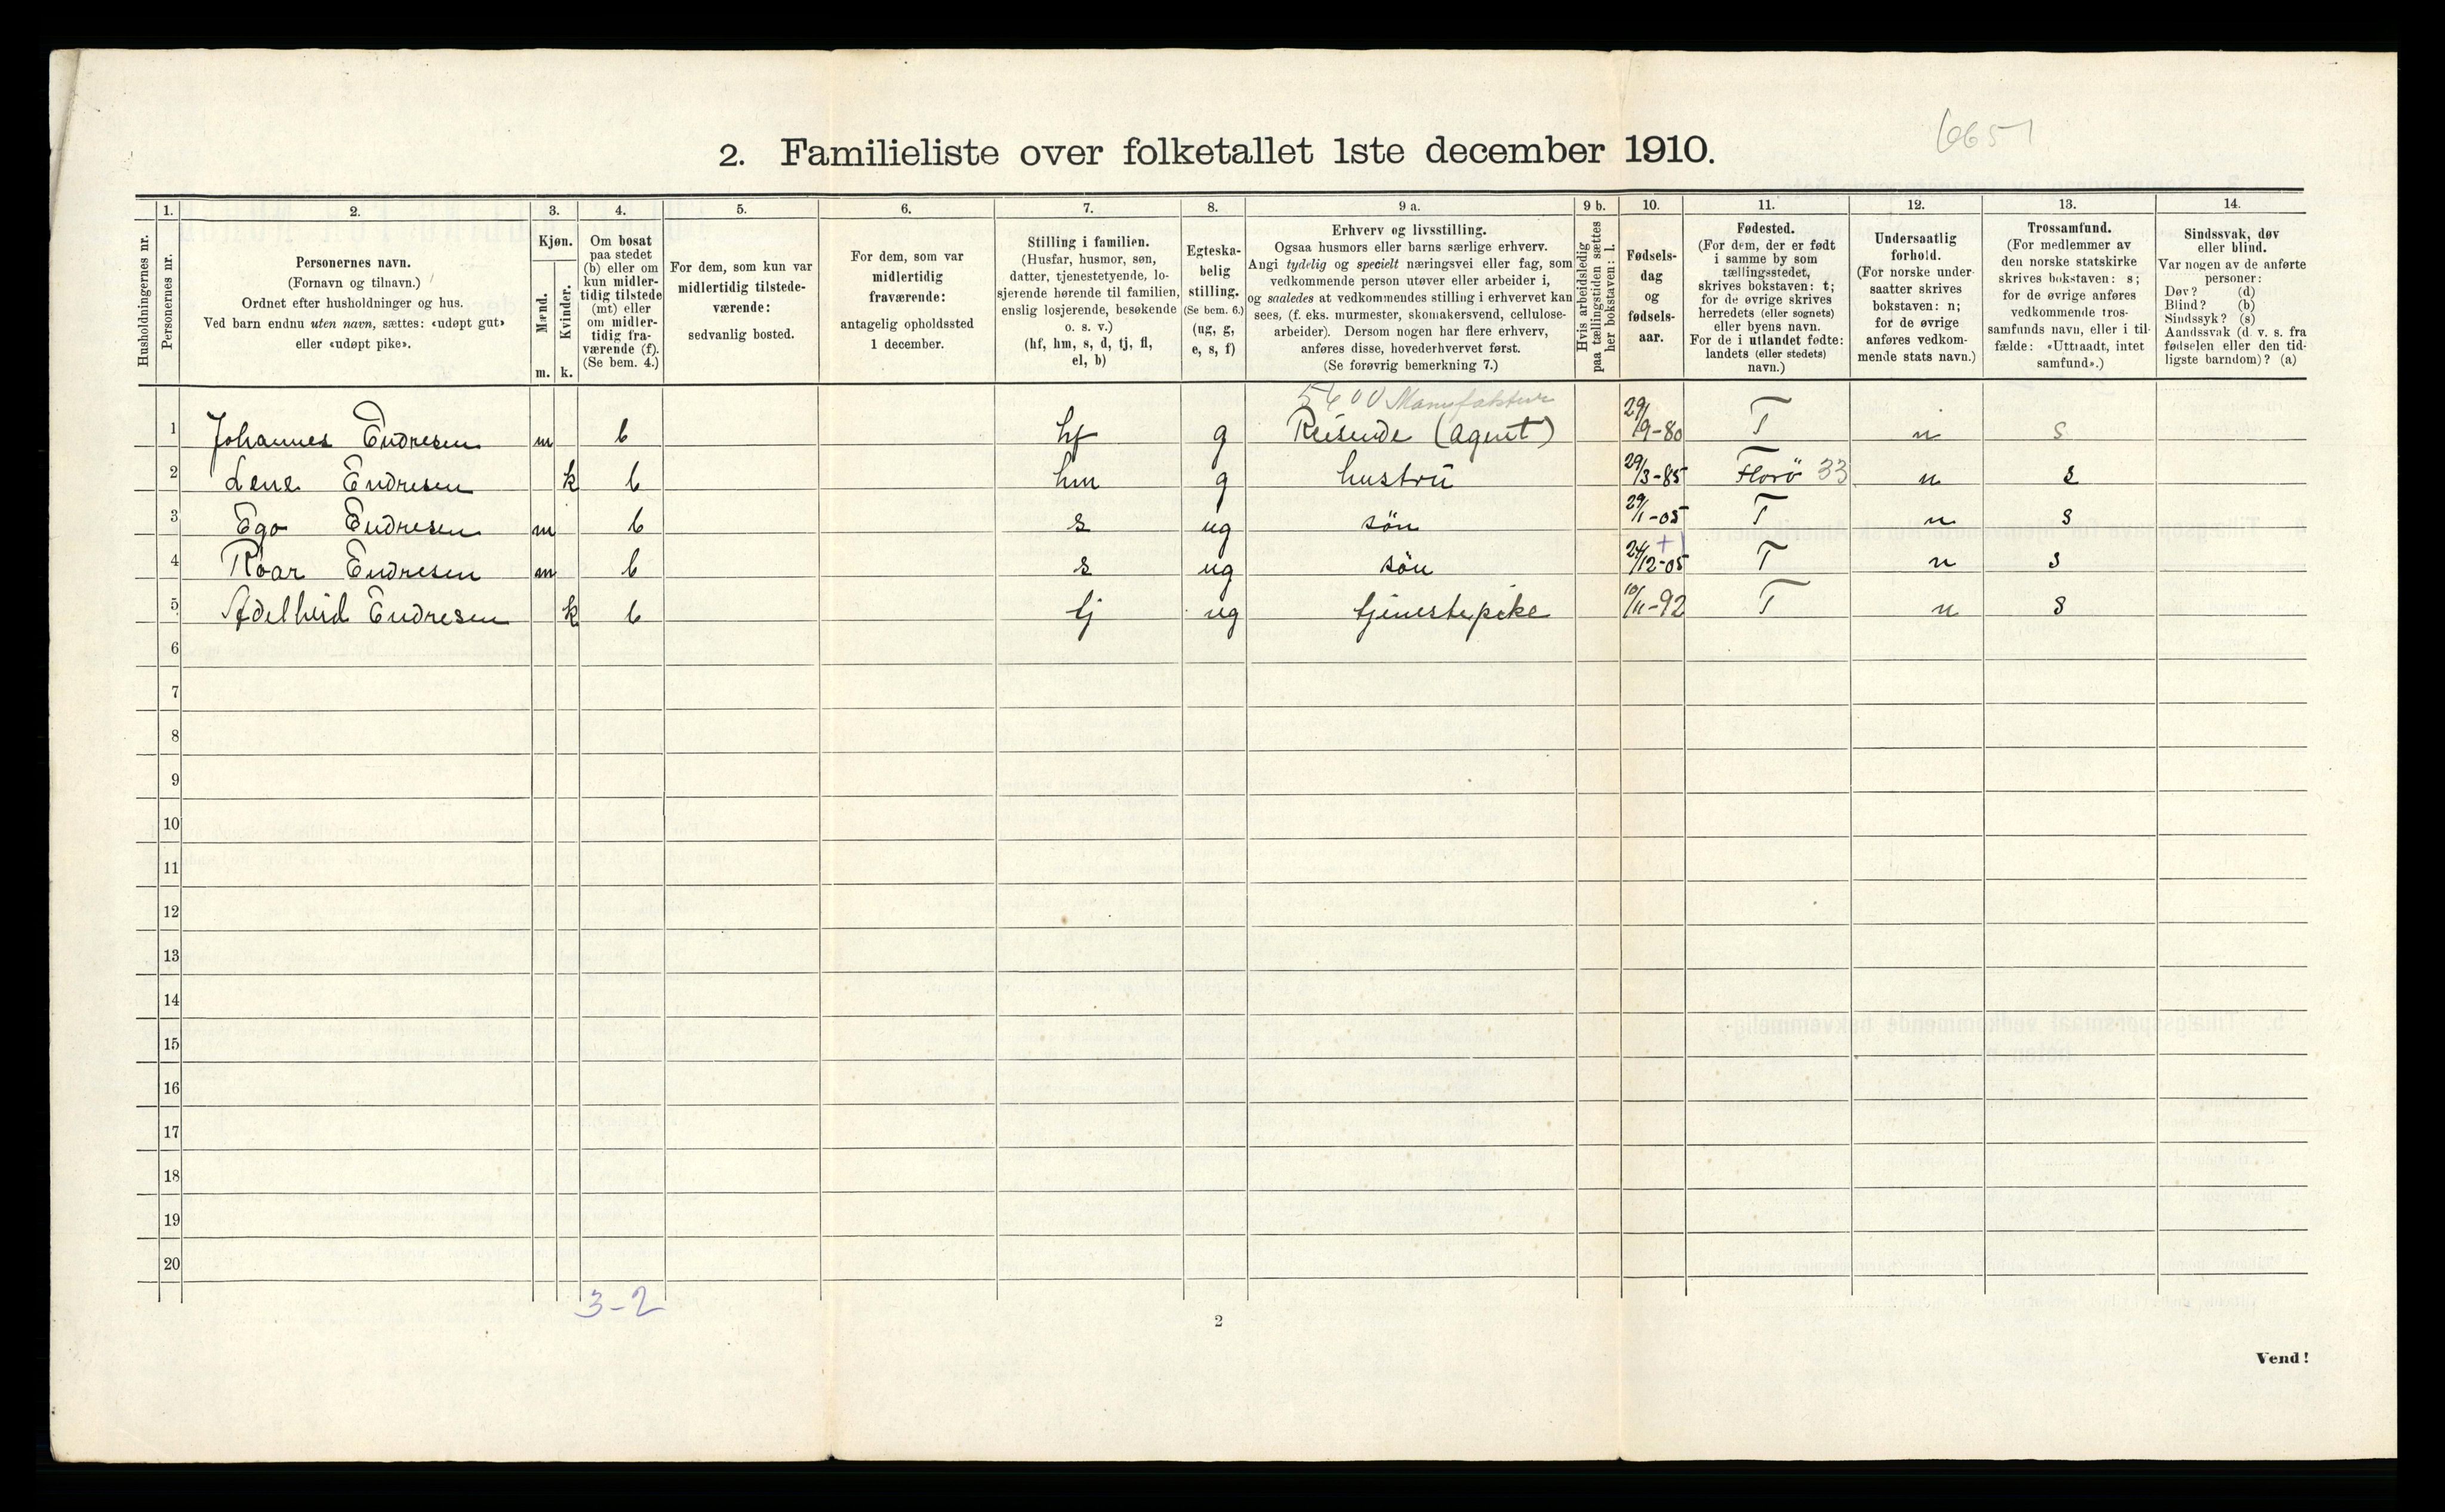 6651
2. Familieliste over folketallet 1ste december 1910.
1. 2. 3. 4. 5. 6. 7. 8. 9 a. 9 b. 10. 11. 12. 13. 14.
Husholdningernes nr.
Personernes nr.
Personernes navn.
(Fornavn og tilnavn.)
Ordnet efter husholdninger og hus.
Ved barn endnu uten navn, sættes: «udøpt gut»
eller «udøpt pike».
Kjøn.
Mænd.
Kvinder.
m. k.
Om bosat
paa stedet
(b) eller om
kun midler-
tidig tilstede
(mt) eller
om midler-
tidig fra-
værende (f).
(Se bem. 4.)
For dem, som kun var
midlertidig tilstede-
værende:
sedvanlig bosted.
For dem, som var
midlertidig
fraværende:
antagelig opholdssted
1 december.
Stilling i familien.
(Husfar, husmor, søn,
datter, tjenestetyende, lo-
sjerende hørende til familien,
enslig losjerende, besøkende
o. s. v.)
(hf, hm, s, d, tj, fl,
el, b)
Egteska-
belig
stilling.
(Se bem. 6.)
(ug, g,
e, s, f)
Erhverv og livsstilling.
Ogsaa husmors eller barns særlige erhverv.
Angi tydelig og specielt næringsvei eller fag, som
vedkommende person utøver eller arbeider i,
og saaledes at vedkommendes stilling i erhvervet kan
sees, (f. eks. murmester, skomakersvend, cellulose-
arbeider). Dersom nogen har flere erhverv,
anføres disse, hovederhvervet først.
(Se forøvrig bemerkning 7.)
Hvis arbeidsledig
paa tællingstiden sættes
her bokstaven: l.
Fødsels-
dag
og
fødsels-
aar.
Fødested.
(For dem, der er født
i samme by som
tællingsstedet,
skrives bokstaven: t;
for de øvrige skrives
herredets (eller sognets)
eller byens navn.
For de i utlandet fødte:
landets (eller stedets)
navn.)
Undersaatlig
forhold.
(For norske under-
saatter skrives
bokstaven: n;
for de øvrige
anføres vedkom-
mende stats navn.)
Trossamfund.
(For medlemmer av
den norske statskirke
skrives bokstaven: s;
for de øvrige anføres
vedkommende tros-
samfunds navn, eller i til-
fælde: «Uttraadt, intet
samfund».)
Sindssvak, døv
eller blind.
Var nogen av de anførte
personer:
Døv? (d)
Blind? (b)
Sindssyk? (s)
Aandssvak (d. v. s. fra
fødselen eller den tid-
ligste barndom)? (a)
5400 Manufaktur
1 Johannes Endresen m b hf g Reisende (agent) 29/9-80 T n s
2 Lene Endresen k b hm g hustrü 29/3-85 Florö 33 n s
3 Ego Endresen m b s ug sön 29/1-05 T n s
4 Roar Endresen m b s ug sön 24/12-05 + T n s
5 Adelheid Endresen k b tj ug tjenestepike 10/11-92 T n s
6
7
8
9
10
11
12
13
14
15
16
17
18
19
20
3-2
2
Vend!